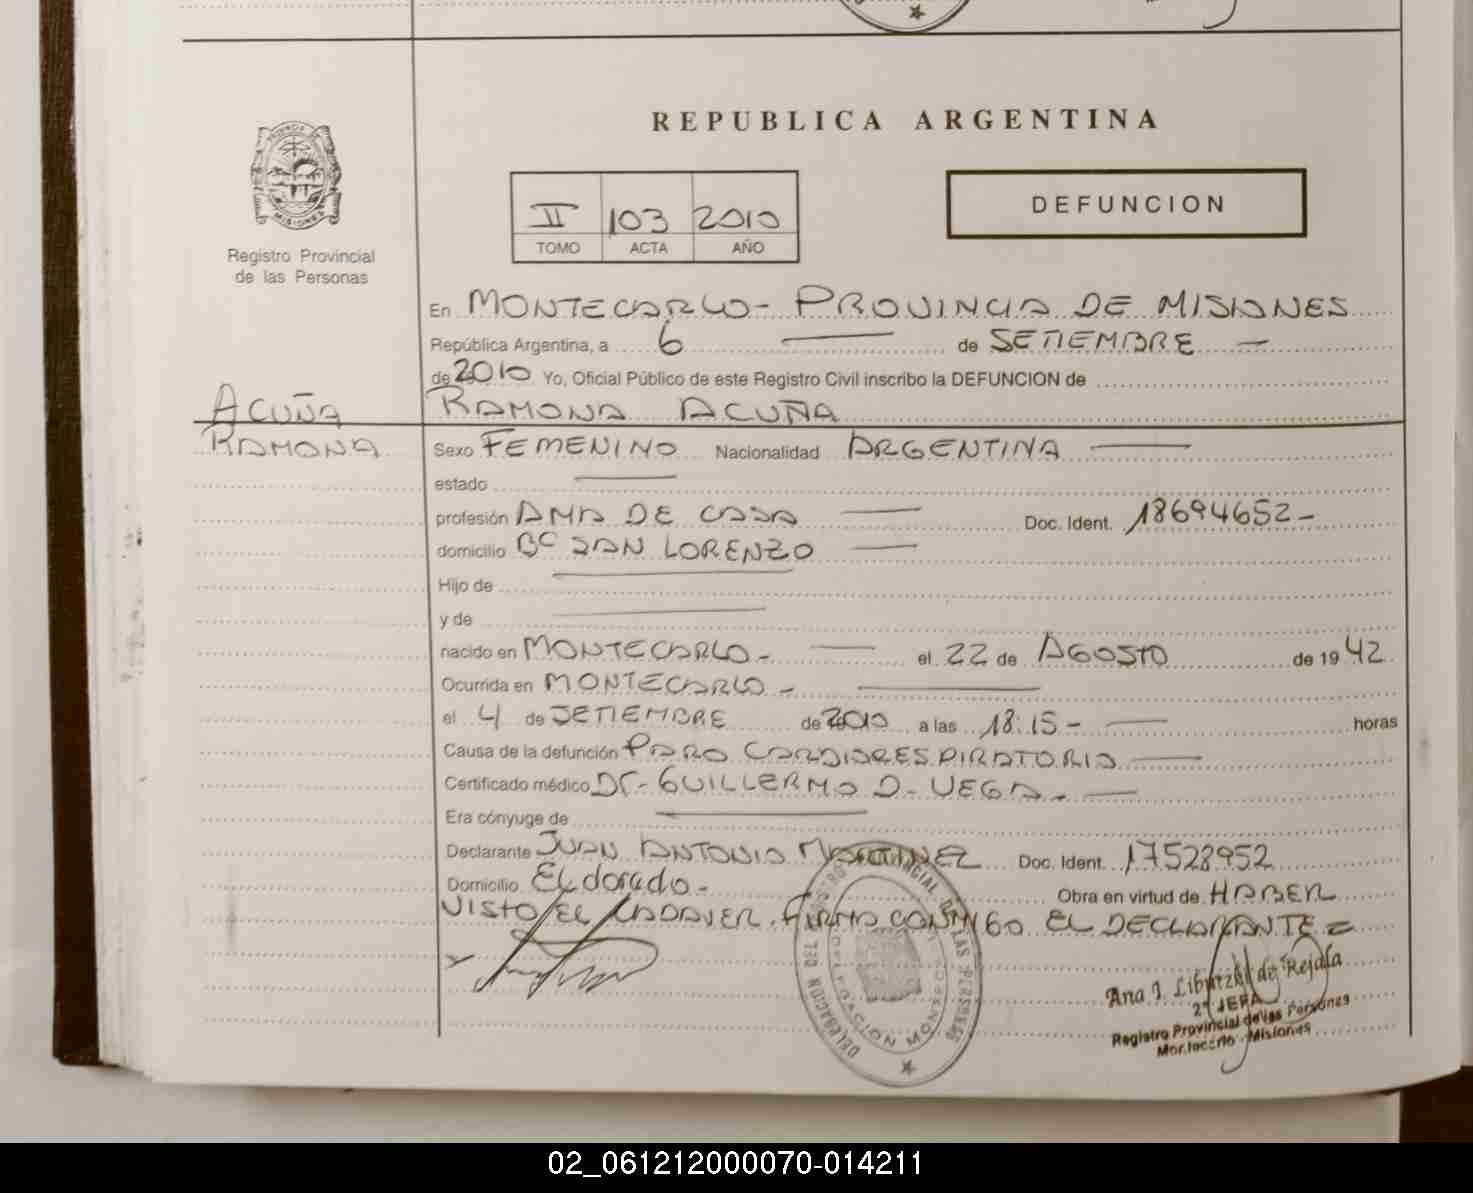 REPUBLICA ARGENTINA
PROVINCIA DE
MISIONES
Registro Provincial
de las Personas
II 103 2010
TOMO ACTA AÑO
DEFUNCION
En MONTECARLO - PROVINCIA DE MISIONES
República Argentina, a 6 de SETIEMBRE
de 2010 Yo, Oficial Público de este Registro Civil inscribo la DEFUNCION de
ACUÑA
RAMONA
RAMONA ACUÑA
Sexo FEMENINO Nacionalidad ARGENTINA
estado
profesión AMA DE CASA Doc. Ident. 18694652-
domicilio Bº SAN LORENZO
Hijo de
y de
nacido en MONTECARLO - el 22 de AGOSTO de 1942
Ocurrida en MONTECARLO -
el 4 de SETIEMBRE de 2010 a las 18:15- horas
Causa de la defunción PARO CARDIORESPIRATORIO
Certificado médico Dr- GUILLERMO D- VEGA-
Era cónyuge de
Declarante JUAN ANTONIO MARTINEZ Doc. Ident. 17528952
Domicilio ELdorado- Obra en virtud de HABER
VISTO EL CADAVER. FIRMA CONMIGO EL DECLARANTE =
DELEGACION MONTECARLO
Ana I. de Rejala
2º JEFA
Registro Provincial de las Personas
Montecarlo - Misiones
02_061212000070-014211